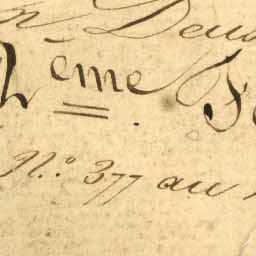 Deu
2eme. S
N.o 377 au